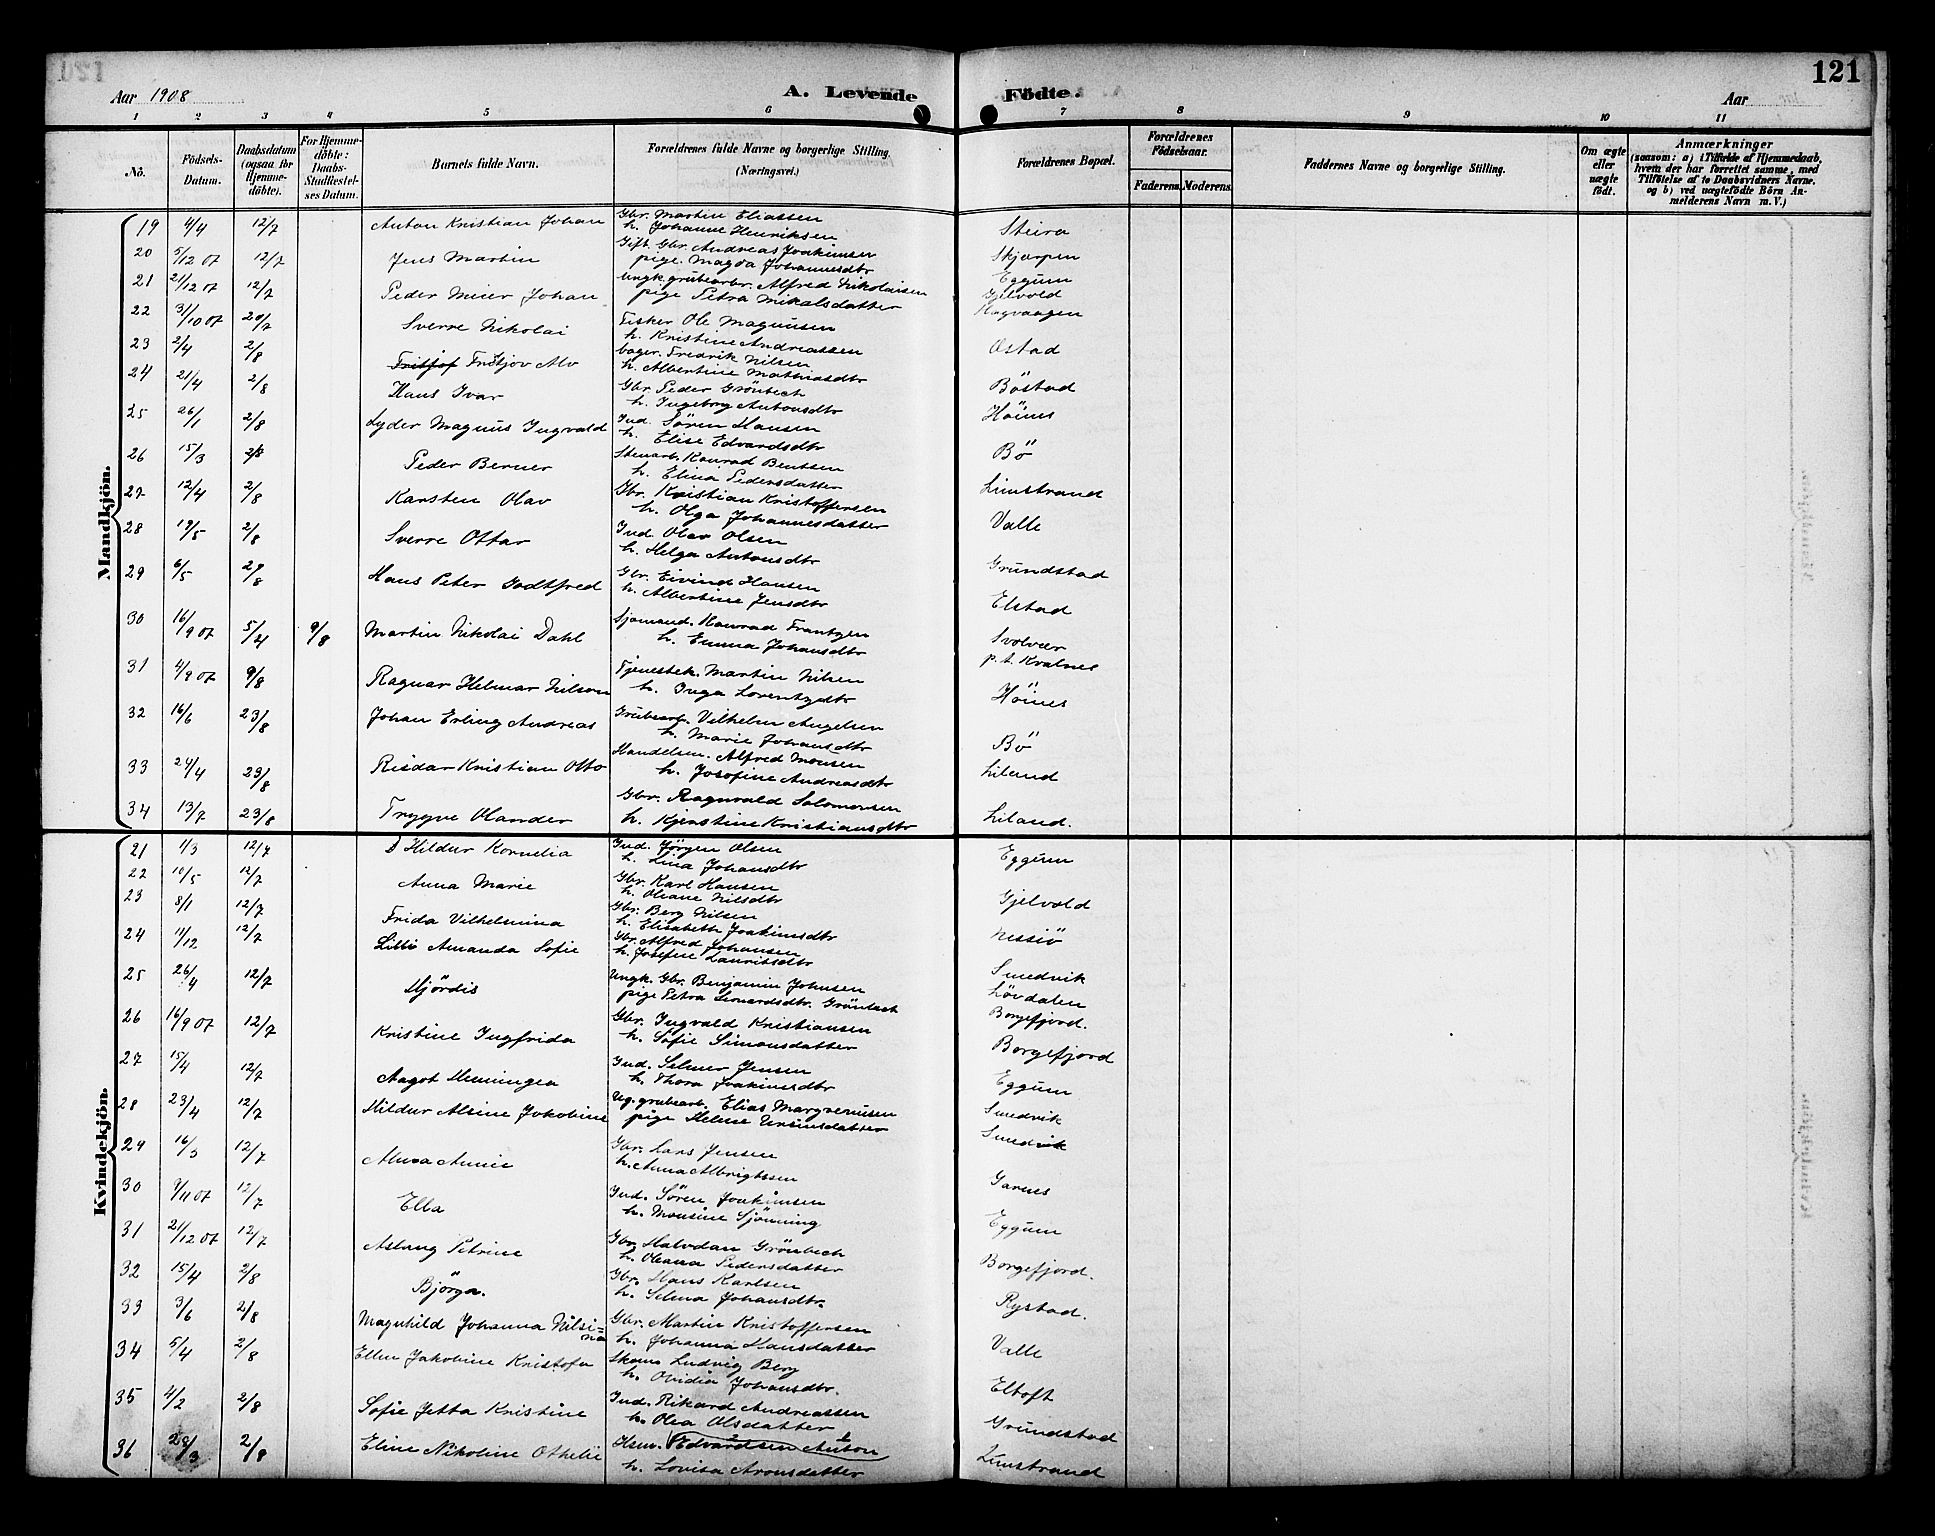 121
Aar 1908
A. Levende Födte.
Aar
1 2 3 4 5 6 7 8 9 10 11
Nô.
Födsels-Datum.
Daabsdatum (ogsaa for Hjemme-döbte).
For Hjemme-döbte: Daabs-Stadfæstelses Datum.
Barnets fulde Navn.
Forældrenes fulde Navne og borgerlige Stilling. (Næringsvei.)
Forældrenes Bopæl.
Forældrenes Födselsaar.
Faderens. Moderens.
Faddernes Navne og borgerlige Stilling.
Om ægte eller uægte födt.
Anmærkninger (saasom: a) i Tilfælde af Hjemmedaab, hvem der har forrettet samme, med Tilföielse af to Daabsvidners Navne, og b) ved uægtefödte Börn Anmelderens Navn m. V.)
Mandkjön.
19 4/4 12/7 Anton Kristian Johan Gbr. Martin Eliassen Steira
h. Johanne Henriksen
20 5/12 07 12/7 Jens Martin Gift. Gbr. Andreas Joakimsen Skjærpen
pige. Magda Johannesdtr Eggum
21 21/12 07 12/7 Peder Meier Johan Ungk. grubearbr. Alfred Nikolaisen Gjelvold
pige Petra Mikalsdatter Hagvaagen
22 31/10 07 20/7 Sverre Nikolai Fisker Ole Magnusen Østad
h. Kristine Andreassen
23 2/4 2/8 Fritjof Fritjov Alv bager. Fredrik Nilsen Böstad
h. Albertine Mathiasdtr
24 21/4 2/8 Hans Ivar Gbr Peder Grönbech Höines
h. Ingeborg Antonsdtr
25 26/1 2/8 Lyder Magnus Ingvald Ind. Sören Hansen Bö
h. Elise Edvardsdtr
26 15/3 2/8 Peder Berner Stenarb. Konrad Bentsen Limstrand
h. Elina Pedersdatter
27 12/4 2/8 Karsten Olav Gbr. Kristian Kristoffersen Valle
h. Olga Johannesdatter
28 19/5 2/8 Sverre Ottar Ind. Olav Olsen Grundstad
h. Helga Antonsdtr
29 6/5 2/8 Hans Peter Godtfred Gbr. Eivind Hansen Elstad
h. Albertine Jensdtr
30 16/9 07 5/4 9/8 Martin Nikolai Dahl Sjömand. Konrad Frantzen Svolvær
h. Emma Johansdtr p. t. Kvalnes
31 4/9 07 9/8 Ragnar Helmar Nilson Tjenestek. Martin Nilsen Höines
h. Inga Lorentzdtr
32 16/6 23/8 Johan Erling Andreas Grubearb. Vilhelm Angelsen Bö
h. Marie Johansdtr
33 24/4 23/8 Reidar Kristian Otto Handelsm. Alfred Monsen Liland
h. Josefine Andreasdtr
34 13/7 23/8 Trygve Olander Gbr. Ragnvald Salomonsen Liland.
h. Kjerstine Kristiansdtr
Kvindekjön.
21 1/3 12/7 Hildur Kornelia Ind. Jörgen Olsen Eggum
h. Lina Johansdtr
22 10/5 12/7 Anna Marie Gbr. Karl Hansen Gjelvold
h. Oliane Nilsdtr
23 8/1 12/7 Frida Vilhelmina Gbr. Berg Nilsen Nessiö
h. Elisabeth Joakimsdtr
24 11/12 12/7 Lilli Amanda Sofie Gbr. Alfred Johansen Smedvik
h. Josefine Lauritsdtr
25 26/4 12/7 Hjördis Ungk. Gbr. Benjamin Johnsen Lövdalen
pige Petra Leonardsdtr. Grönbech Borgefjord.
26 16/9 07 12/7 Kristine Ingfrida Gbr. Ingvald Kristiansen Borgefjord
h. Sofie Simonsdatter
27 15/4 12/7 Aagot Henningea Ind. Selmer Jensen Eggum
h. Thora Joakimsdtr
28 23/4 12/7 Hildur Alsine Jakobine Ug. grubearb. Elias Margvenusen Smedvik
pige Helene Ursinsdatter Smedvik
29 16/3 12/7 Alma Annie Gbr. Lars Jensen Garnes
h. Anna Albrigtssen
30 9/11 07 12/7 Ella Ind. Sören Joakimsen Eggum
h. Monsine Sjönning
31 21/12 07 12/7 Aslaug Petrine Gbr Halvdan Grönbech Borgefjord.
h. Oleana Pedersdatter
32 15/4 2/8 Björga. Gbr. Hans Karlsen Rystad.
h. Selma Johansdtr.
33 3/6 2/8 Magnhild Johanna Nilsina Gbr. Martin Kristoffersen Valle
h. Johanna Hansdatter
34 5/4 2/8 Ellen Jakobine Kristofa Skom Ludvig Berg Eltoft
h. Ovidia Johansdtr.
35 4/2 2/8 Sofie Jetta Kristine Ind. Rikard Andreassen Grundstad
h. Olea Olsdatter
36 28/3 2/8 Eline Nikoline Othelie Hsm. Edvardsen Anton Limstrand
h. Lovisa Aronsdatter